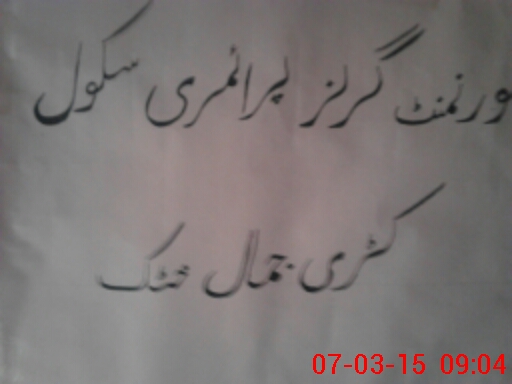 ورنمنٹ گرلز پرائمری سکول
کڑی جمال خٹک
07-03-15 09:04